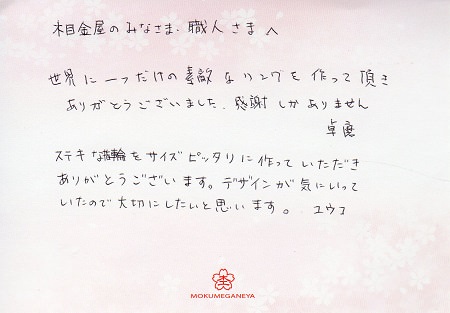 杢目金屋のみなさま、職人さまへ
世界に一つだけの素敵なリングを作って頂き
ありがとうございました。感謝しかありません
卓磨
ステキな指輪をサイズピッタリに作っていただき
ありがとうございます。デザインが気にいって
いたので大切にしたいと思います。 ユウコ
MOKUMEGANEYA